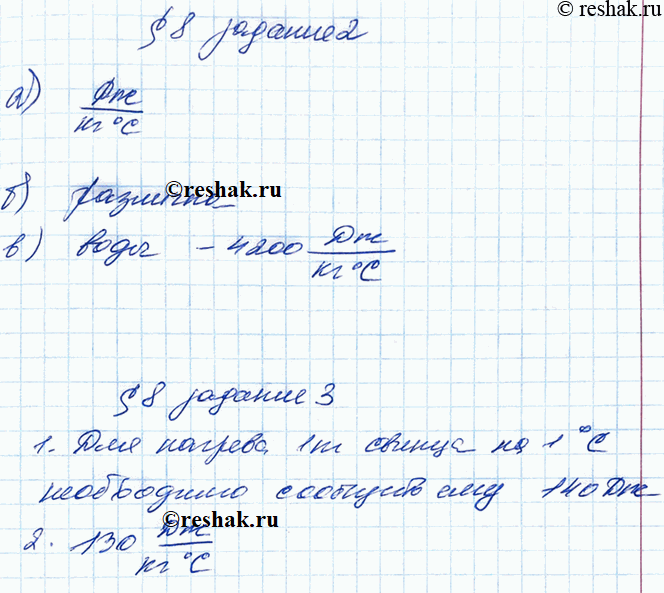 © reshak.ru
§ 8 задание 2
а) Дж
кг °C
©reshak.ru
б) различна
в) воды – 4200 Дж
кг °C
§ 8 задание 3
1. Для нагрева 1т свинца на 1 °C
необходимо сообщить ему 140 Дж
©reshak.ru
2. 130 Дж
кг °C